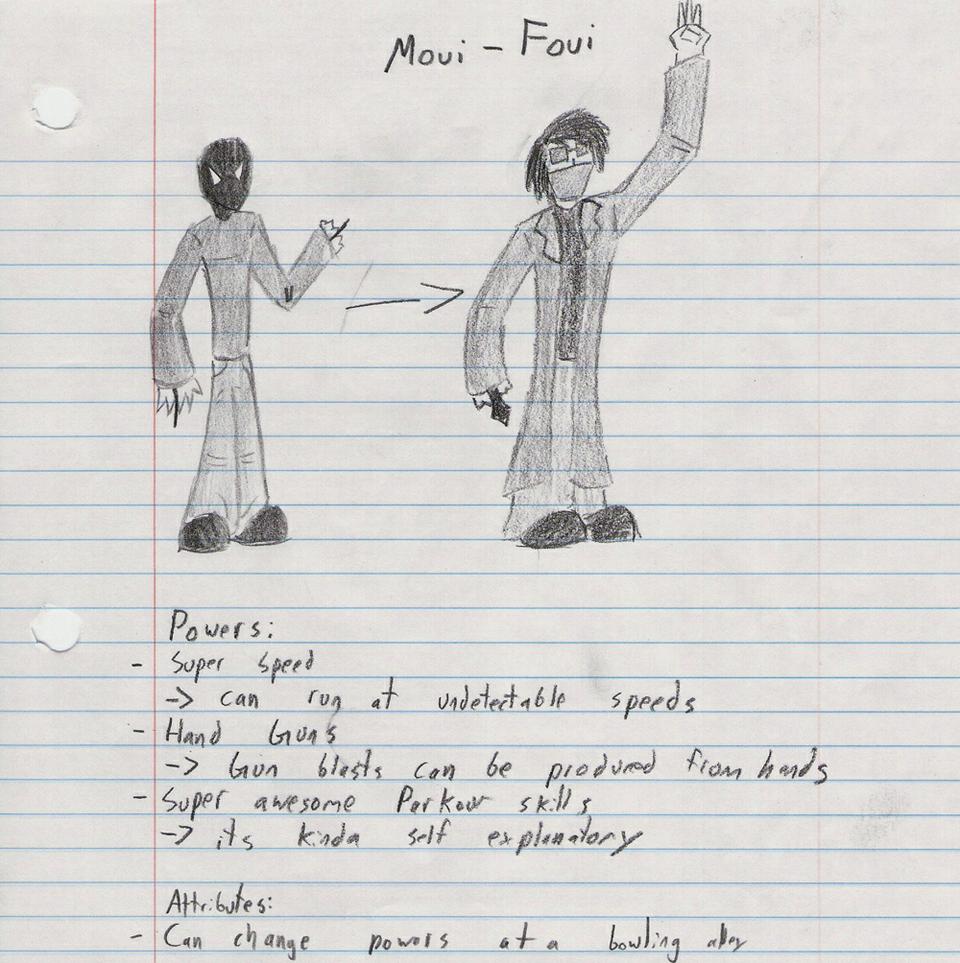 Moui - Foui
Powers:
- Super Speed
-> can run at undetectable speeds
- Hand Guns
-> Gun blasts can be produced from hands
- Super awesome Parkour skills
-> its kinda self explanatory
Attributes:
- Can change powers at a bowling alley